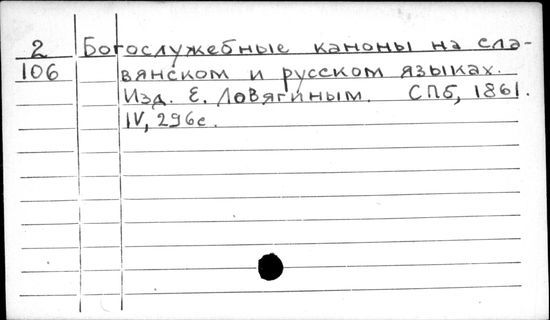 2 Богослужебные каноны на сла-
106 вянском и русском языках.
Изд. Е. Ловягиным. СПб, 1861.
IV, 296с.